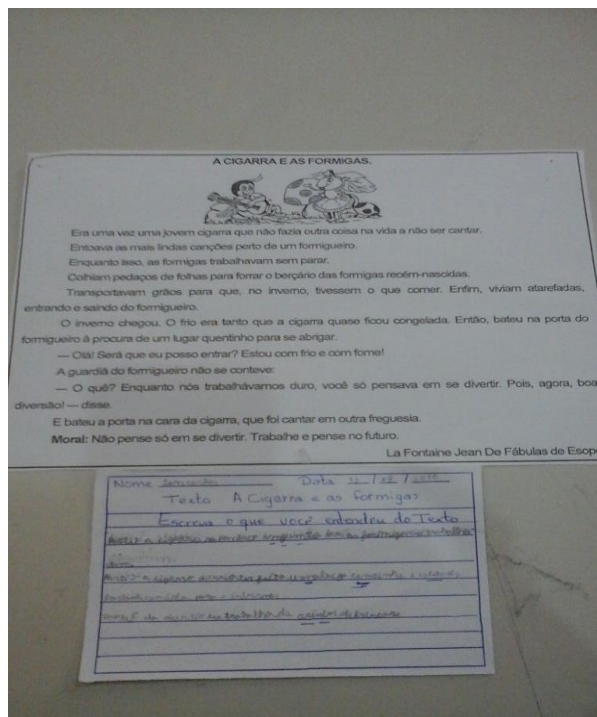 A CIGARRA E AS FORMIGAS.
Era uma vez uma jovem cigarra que não fazia outra coisa na vida a não ser cantar.
Entoava as mais lindas canções perto de um formigueiro.
Enquanto isso, as formigas trabalhavam sem parar.
Colhiam pedaços de folhas para forrar o berçário das formigas recém-nascidas.
Transportavam grãos para que, no inverno, tivessem o que comer. Enfim, viviam atarefadas,
entrando e saindo do formigueiro.
O inverno chegou. O frio era tanto que a cigarra quase ficou congelada. Então, bateu na porta do
formigueiro à procura de um lugar quentinho para se abrigar.
— Olá! Será que eu posso entrar? Estou com frio e com fome!
A guardiã do formigueiro não se conteve:
— O quê? Enquanto nós trabalhávamos duro, você só pensava em se divertir. Pois, agora, boa
diversão! — disse.
E bateu a porta na cara da cigarra, que foi cantar em outra freguesia.
Moral: Não pense só em se divertir. Trabalhe e pense no futuro.
La Fontaine Jean De Fábulas de Esop
Nome Data
Texto A Cigarra e as formigas
Escreva o que você entendeu do Texto